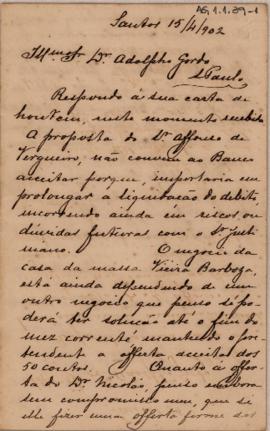 AG.1.1.29-1
Santos 15/4/902
Illmo Sr Dr. Adolpho Gordo
S. Paulo
Respondo á sua carta de
hontem, neste momento recebida
A proposta do Sr. Affonso de
Vergueiro, não convem ao Banco
acceitar porque importaria em
prolongar a liquidação do debito,
incorrendo ainda em riscos ou
duvidas futuras com o Sr. Justi
niano.
O negocio da
casa da massa Vieira Barboza,
está ainda dependendo de um
outro negocio que penso só po
derá ter solução até o fim do
mez corrente mantendo o pre
tendent a offerta acceita dos
50 contos. Quanto á offer
ta do Dr. Nicolão, penso embora
sem compromisso meu, que si
elle fizer uma offerta forme dos